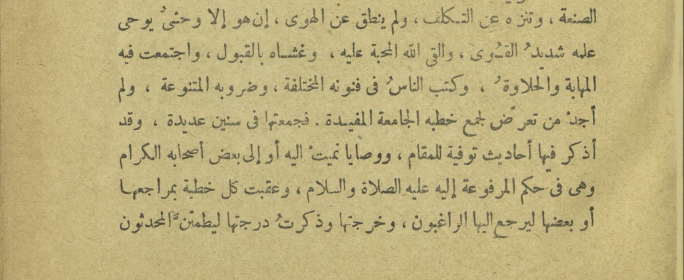 الصنعة ، وتنزه عن التكلف ، ولم ينطق عن الهوى ، إن هو إلا وحىٌ يوحى
علمه شديدُ القوى ، والقى الله المحبة عليه ، وغشاه بالقبول ، واجتمعت فيه
المهابة والحلاوةُ ، وكتب الناسُ فى فنونه المختلفة ، وضروبه المتنوعة ، ولم
أجدْ من تعرّض لجمع خطبه الجامعة المفيدة . فجمعتها فى سنين عديدة ، وقد
أذكر فيها أحاديث توفية للمقام ، ووصايا نميت اليه أو إلى بعض أصحابه الكرام
وهى فى حكم المرفوعة إليه عليه الصلاة والسلام ، وعقبت كل خطبة بمراجعها
أو بعضها ليرجع اليها الراغبون ، وخرجتها وذكرتُ درجتها ليطمئنّ المحدثون